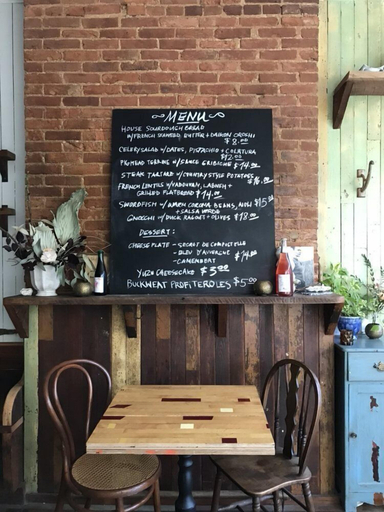 MENU
HOUSE SOURDOUGH BREAD
W/FRENCH BUTTER + DAIKON
$8.00
CELERY SALAD W/DATES, PISTACHIO + COLATURA
$12.00
PIGHEAD TERRINE W/SAUCE GRIBICHE $14.00
STEAK TARTARE W/COUNTRY STYLE POTATOES
$16.00
FRENCH LENTILS W/VADOUVAN, LABNEH +
GRILLED FLATBREAD $14.00
SWORDFISH W/ CORONA BEANS, $15
+ SALSA VERDE
GNOCCHI W/DUCK RAGOUT + OLIVES $18.00
DESSERT:
CHEESE PLATE - SECRET DE COMPOSTELLE
- BLEU D'AUVERGNE
- CAMEMBERT
$14.00
YUZU CHEESECAKE $5.00
BUCKWEAT PROFITEROLES $5.00